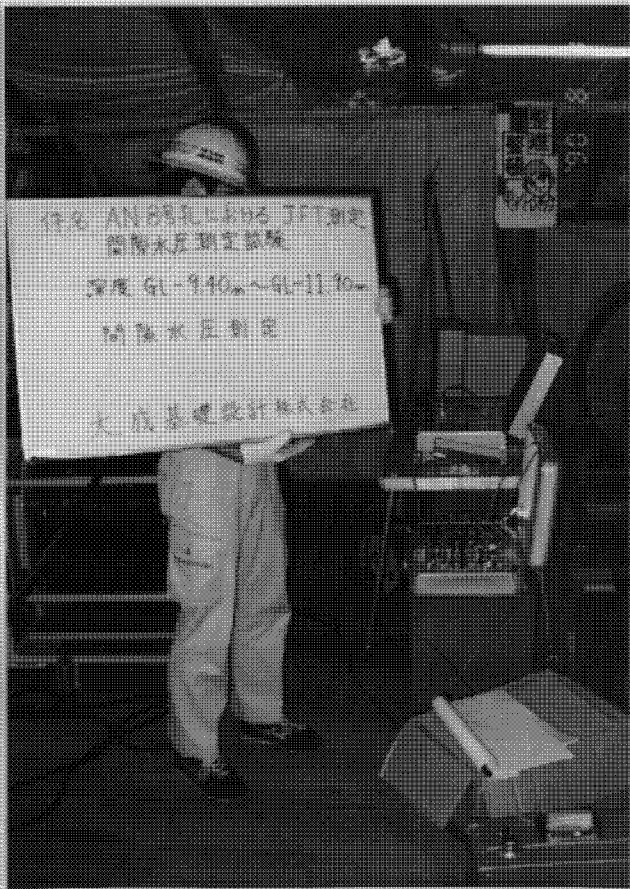 件名 AN-6号孔における JFT測定
間隙水圧測定試験
深度 GL-9.40m～GL-11.90m
間隙水圧測定
大成基礎設計株式会社